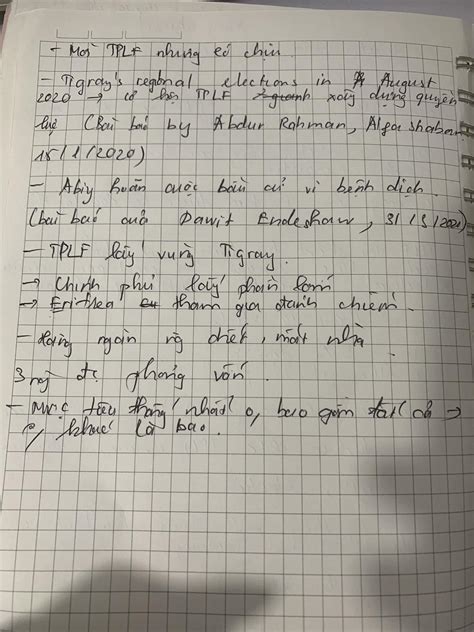 - Mời TPLF nhưng eó chịu
- Tigray's regional elections in August
2020 → cơ hội TPLF xây dựng quyền
lực (Bài báo by Abdur Rahman, Alfa Shaban
15/1/2020)
- Abiy hoãn cuộc bầu cử vì bệnh dịch.
(bài báo của Dawit Endeshaw, 31/3/2020)
- TPLF lấy vùng Tigray.
→ Chính phủ lấy phần lớn
→ Eritrea tham gia đánh chiếm.
- Hàng ngàn ng chết, mất nhà
3 ng đc phỏng vấn.
- Mục tiêu thống nhất o, bao gồm tất cả →
o, khác là bao.